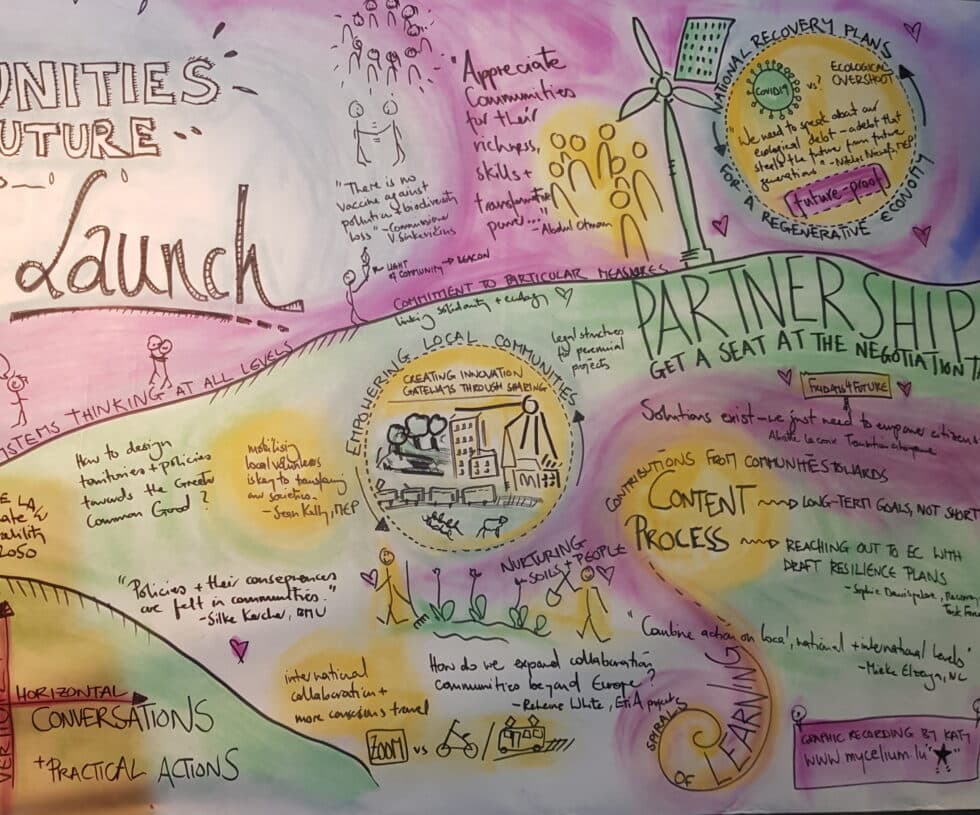 UNITIES
UTURE
Launch
"There is no
vaccine against
pollution + biodiversity
loss" - Commissioner
V. Sinkevičius
LIGHT
OF COMMUNITY → BEACON
"Appreciate
Communities
for their
richness,
skills +
transformative
power..."
- Abdul Otman
NATIONAL RECOVERY PLANS
FOR A REGENERATIVE ECONOMY
COVID19
vs?
ECOLOGICAL
OVERSHOOT
"We need to speak about our
ecological debt - a debt that
steals the future from future
generations"
MEP
future-proof
SYSTEMS THINKING AT ALL LEVELS
COMMITMENT TO PARTICULAR MEASURES
linking solidarity + ecology
legal structures
for perennial
projects
PARTNERSHIP
GET A SEAT AT THE NEGOTIATION TA
FRIDAYS4FUTURE
Solutions exist - we just need to empower citizens
How to design
territories + policies
towards the Greater
Common Good?
mobilising
local volunteers
is key to transforming
our societies.
- Sean Kelly, MEP
EMPOWERING LOCAL COMMUNITIES
CREATING INNOVATION
GATEWAYS THROUGH SHARING
CONTRIBUTIONS FROM COMMUNITIES TOWARDS
CONTENT → LONG-TERM GOALS, NOT SHORT
PROCESS → REACHING OUT TO EC WITH
DRAFT RESILIENCE PLANS
- Sophie
2050
"Policies + their consequences
are felt in communities."
- Silke Karcher, BMU
NURTURING
SOILS + PEOPLE
"Combine action on local, national + international levels"
- Mieke Elzenga, NL
international
collaboration +
more conscious travel
How do we expand collaboration
communities beyond Europe?
White,
ZOOM vs /
HORIZONTAL
CONVERSATIONS
+ PRACTICAL ACTIONS
SPIRALS
OF LEARNING
GRAPHIC RECORDING BY KATY
www.mycelium.lu